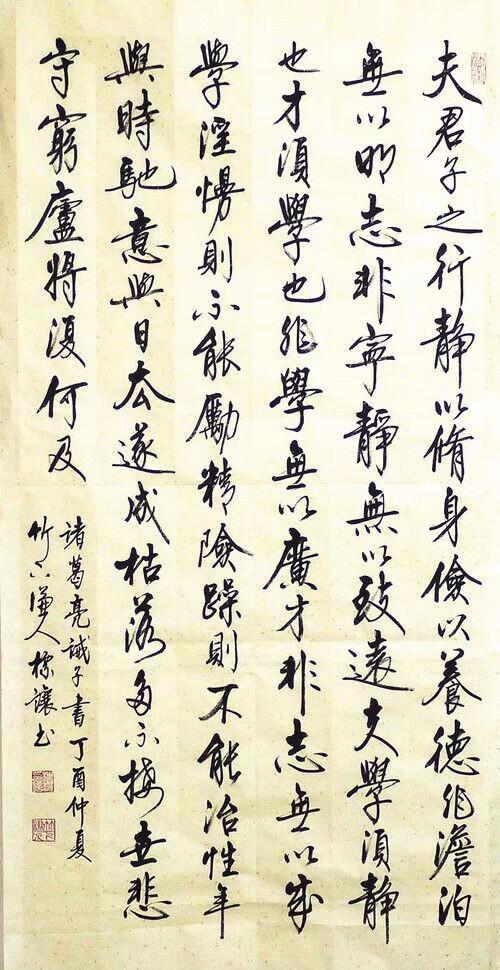 夫君子之行靜以脩身儉以養德非澹泊
無以明志非寧靜無以致遠夫學須靜
也才須學也非學無以廣才非志無以成
學淫慢則不能勵精險躁則不能治性年
與時馳意與日去遂成枯落多不接世悲
守窮廬將復何及
諸葛亮誡子書丁酉仲夏
竹下人讓书